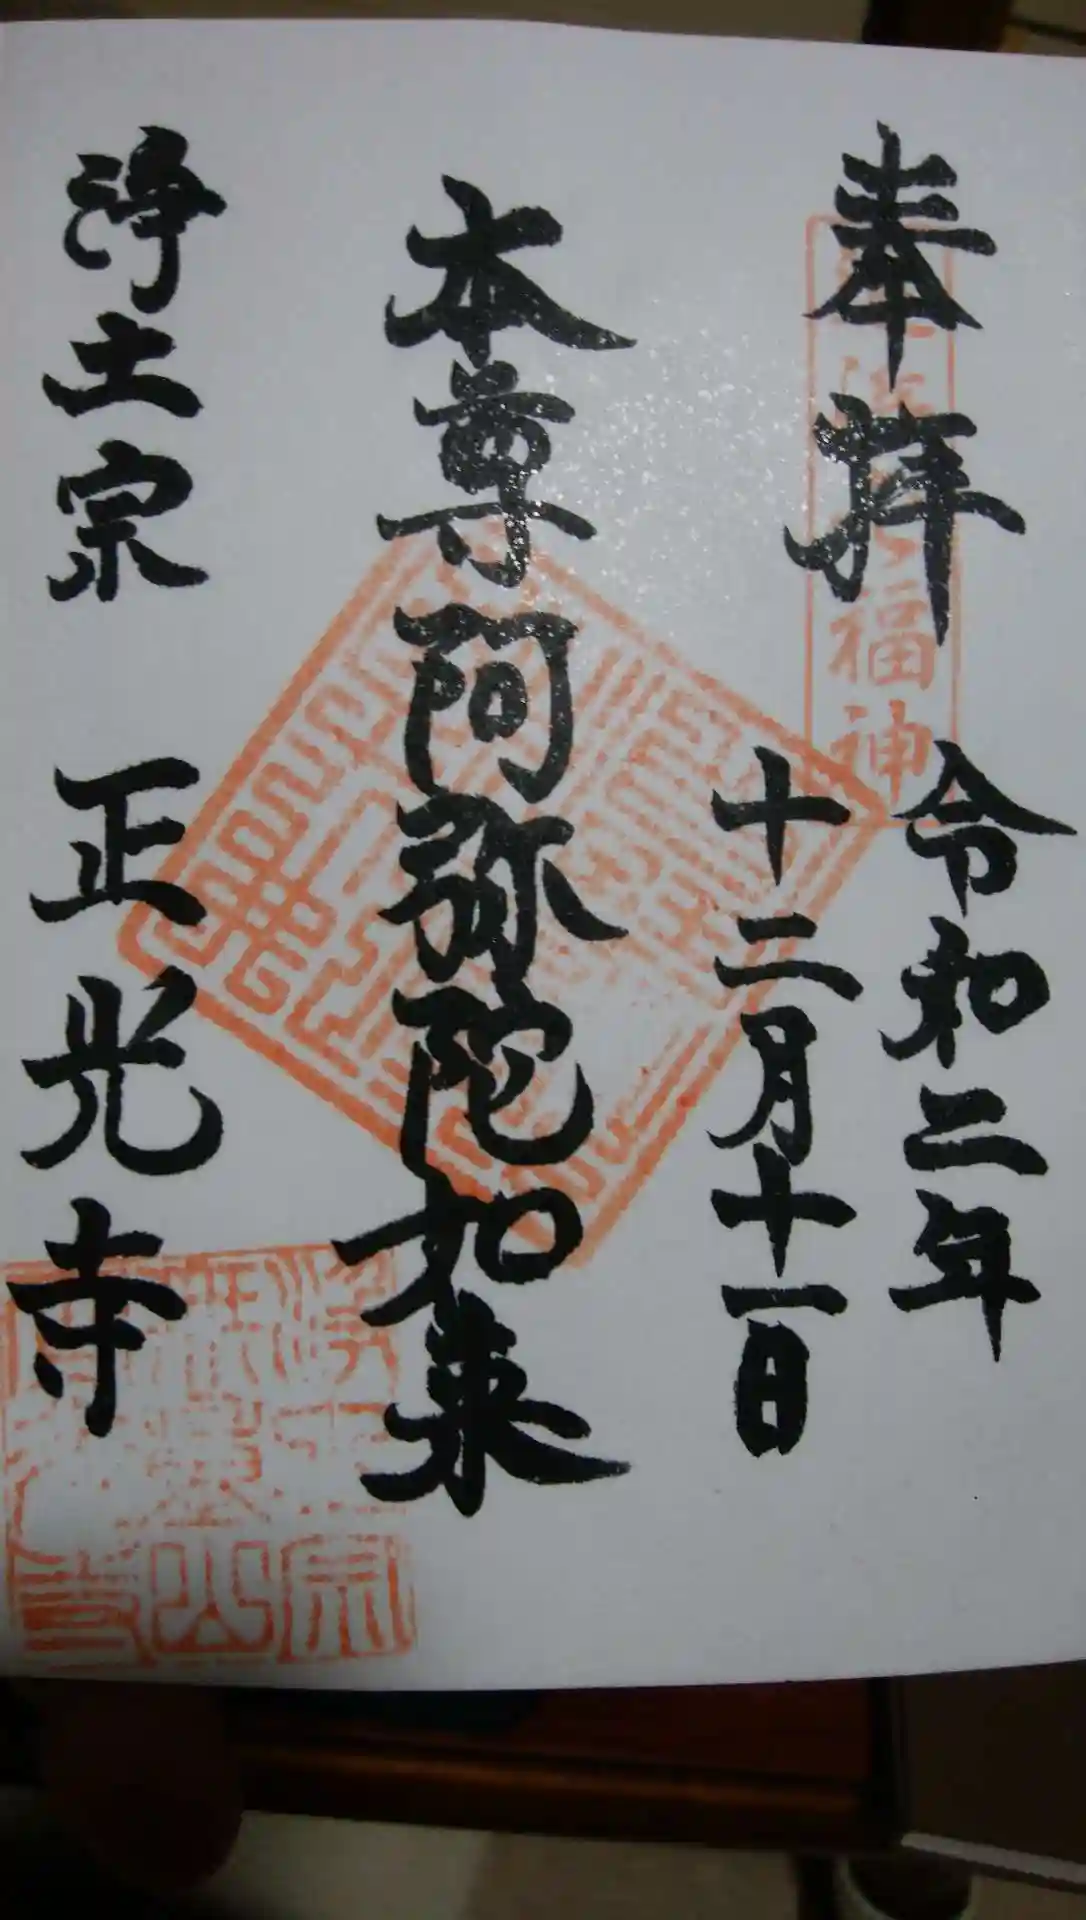 奉拝
令和二年
十二月十一日
本尊阿弥陀如来
浄土宗 正光寺
福神